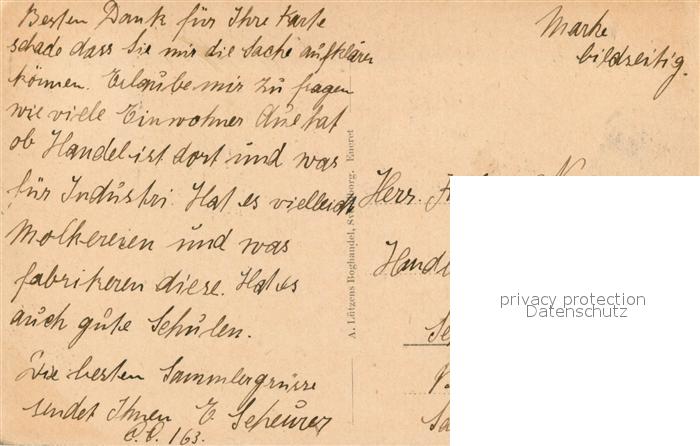 Besten Dank für Ihre Karte
schade dass Sie mir die Sache aufklären
können. Erlaube mir zu fragen
wie viele Einwohner
ob Handel ist dort und was
für Industri. Hat es vielleicht
Molkereien und was
fabrikeren diese. Hat es
auch gute Schulen.
Die besten Sammlergrüsse
sendet Ihnen E Scheurer
C.C. 163.
A. Lützens Boghandel, Svenborg. Eneret
Marke
bildseitig.
Herr.
privacy protection
Datenschutz